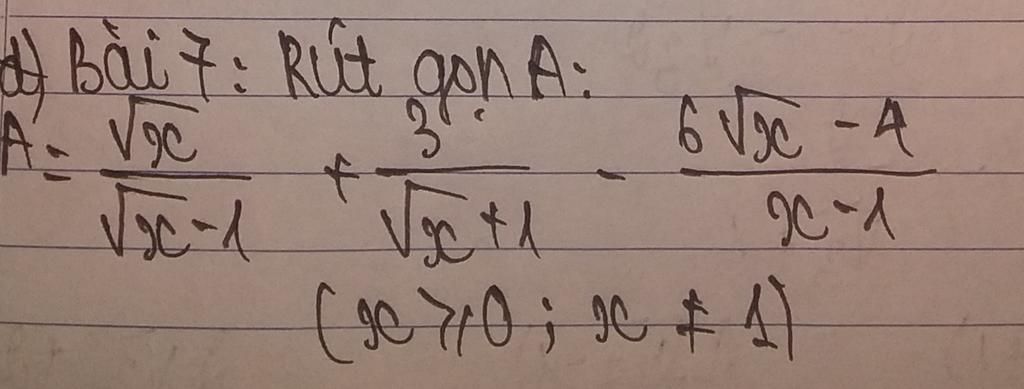 d) Bài 7: Rút gọn A:
A = √x / (√x - 1) + 3 / (√x + 1) - (6√x - 4) / (x - 1)
(x ⩾ 0 ; x ≠ 1)